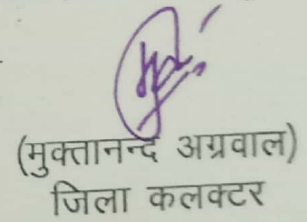 (मुक्तानन्द अग्रवाल)
जिला कलक्टर